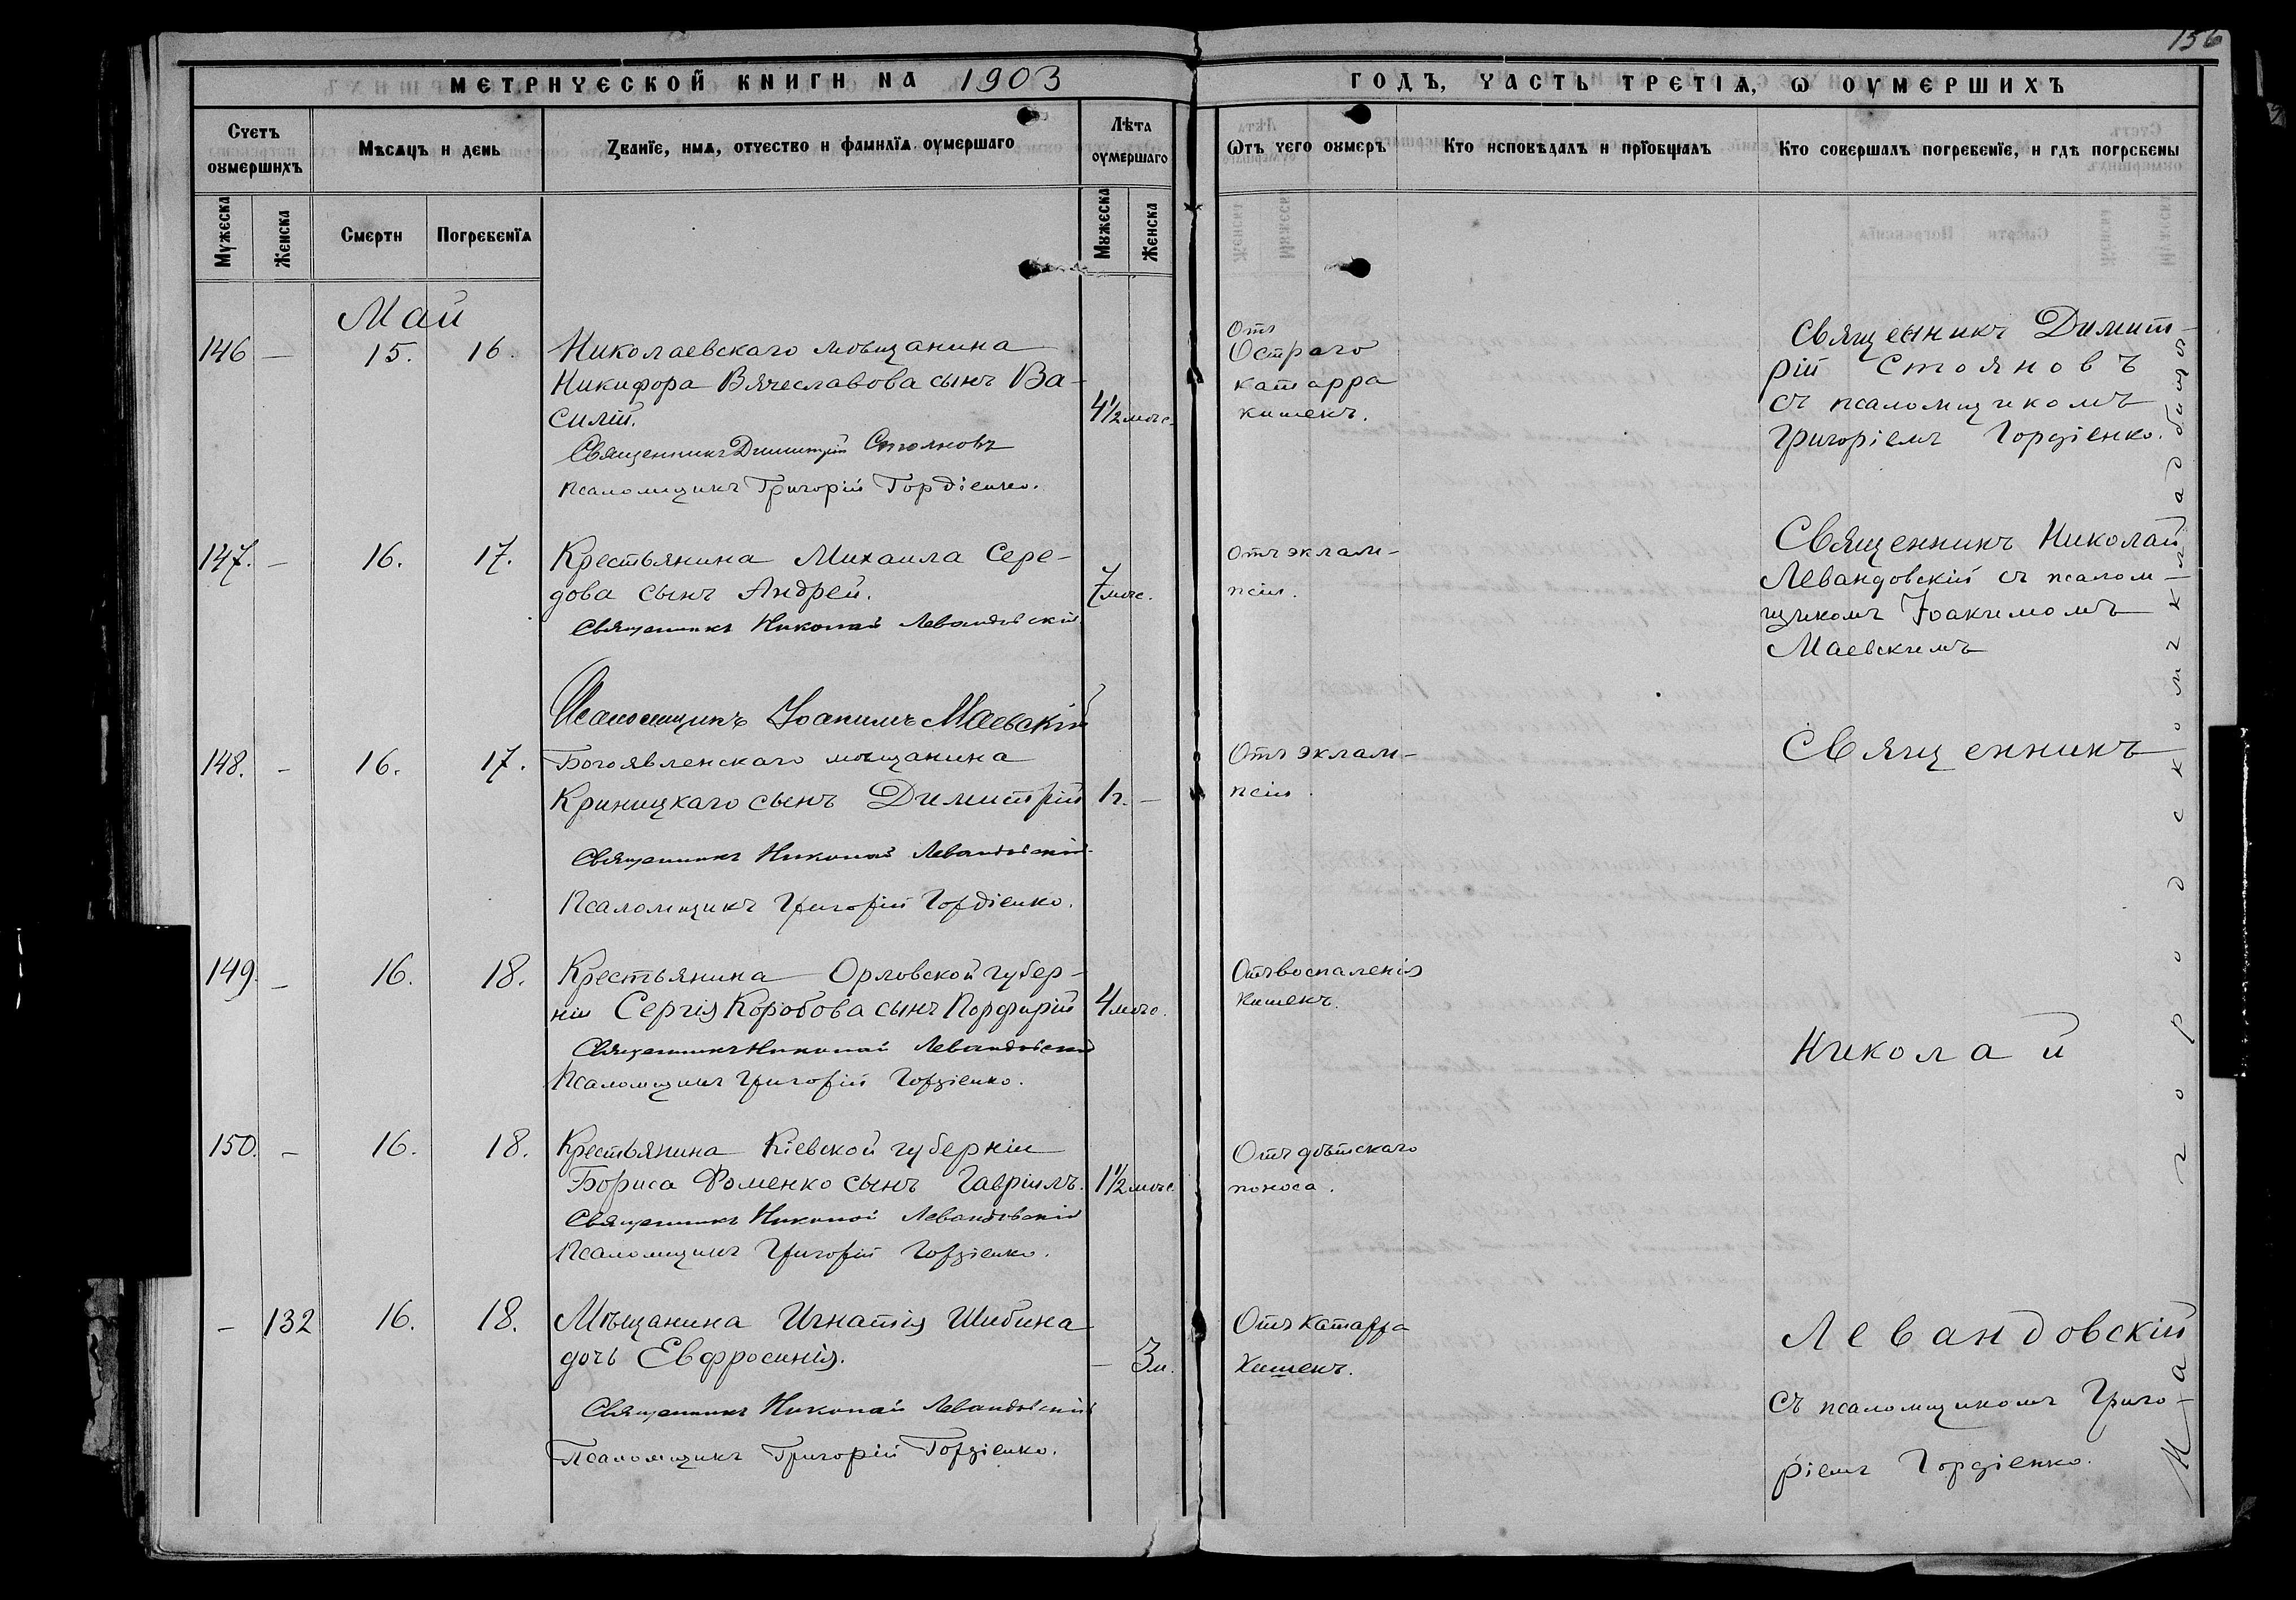 156
МЕТРИЧЕСКОЙ КНИГИ НА 1903
ГОДЪ, ЧАСТЬ ТРЕТІѦ, Ѡ ОУМЕРШИХЪ
Счетъ оумершихъ
Мѣсѧцъ и день
Званїе, имѧ, отчество и фамилїѧ оумершаго
Лѣта оумершаго
Ѿтъ чего оумеръ
Кто исповѣдалъ и прїобщалъ
Кто совершалъ погребенїе, и гдѣ погребены
Мужеска
Женска
Смерти
Погребенїѧ
Мужеска
Женска
Май
146 — 15. 16.
Николаевскаго мѣщанина
Никифора Вячеславова сынъ Ва-
силій.
4 1/2 мѣс.
Священникъ Димитрій Стояновъ
Псаломщикъ Григорій Гордіенко.
Отъ
Остраго
катарра
кишекъ.
Священникъ Димит-
рій Стояновъ
съ псаломщикомъ
Григоріемъ Гордіенко.
147. — 16. 17.
Крестьянина Михаила Сере-
дова сынъ Андрей.
7 мѣс.
Священникъ Николай Левандовскій
Псаломщикъ Іоакимъ Маевскій
Отъ эклам-
псіи.
Священникъ Николай
Левандовскій съ псалом-
щикомъ Іоакимомъ
Маевскимъ
148. — 16. 17.
Богоявленскаго мѣщанина
Криницкаго сынъ Димитрій
1 г. —
Священникъ Николай Левандовскій
Псаломщикъ Григорій Гордіенко.
Отъ эклам-
псіи.
Священникъ
149. — 16. 18.
Крестьянина Орловской губер-
ніи Сергія Коробова сынъ Порфирій
4 мѣс.
Священникъ Николай Левандовскій
Псаломщикъ Григорій Гордіенко.
Отъ воспаленія
кишекъ.
Николай
150. — 16. 18.
Крестьянина Кіевской губерніи
Бориса Фоменко сынъ Гавріилъ.
1 1/2 мѣс.
Священникъ Николай Левандовскій
Псаломщикъ Григорій Гордіенко.
Отъ дѣтскаго
поноса.
— 132 16. 18.
Мѣщанина Игнатія Шибина
дочь Евфросинія.
— 3 м.
Священникъ Николай Левандовскій
Псаломщикъ Григорій Гордіенко.
Отъ катарра
кишекъ.
Левандовскій
съ псаломщикомъ Григо-
ріемъ Гордіенко.
На городскомъ кладбищѣ